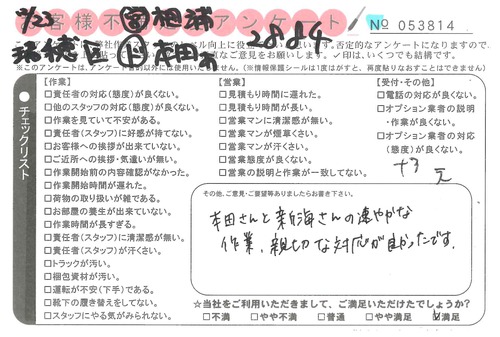 お客様不満足度アンケート
No 053814
2884
※このアンケートは、アンケート目的以外に使用いたしません。(※情報保護シールは1度がはすと、再度貼りなおすことはできません)
チェックリスト
【作業】
□責任者の対応(態度)が良くない。
□他のスタッフの対応(態度)が良くない。
□作業を見ていて不安がある。
□責任者(スタッフ)に好感が持てない。
□お客様への挨拶が出来ていない。
□ご近所への挨拶・気遣いが無い。
□作業開始前の内容確認がなかった。
□作業開始時間が遅れた。
□荷物の取り扱いが雑である。
□お部屋の養生が出来ていない。
□作業時間が長すぎる。
□責任者(スタッフ)に清潔感が無い。
□責任者(スタッフ)が汗くさい。
□トラックが汚い。
□梱包資材が汚い。
□運転が不安(下手)である。
□靴下の履き替えをしてない。
□スタッフにやる気がみられない。
【営業】
□見積もり時間に遅れた。
□見積もり時間が長い。
□営業マンに清潔感が無い。
□営業マンが煙草くさい。
□営業マンが汗くさい。
□営業態度が良くない。
□営業の説明と作業が一致してない。
【受付・その他】
□電話の対応が良くない。
□オプション業者の説明
・作業が良くない。
□オプション業者の対応
(態度)が良くない。
その他、ご意見・ご要望等ありましたらお書き下さい。
本田さんと新海さんの速やかな
作業、親切な対応が良かったです。
☆当社をご利用いただきまして、ご満足いただけたでしょうか?
□不満 □やや不満 □普通 □やや満足 ☑満足